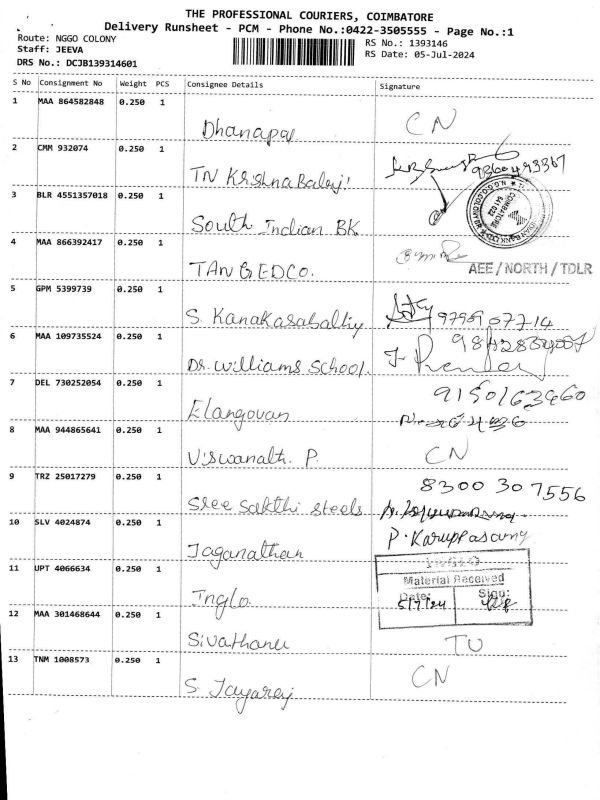 THE PROFESSIONAL COURIERS, COIMBATORE
Delivery Runsheet - PCM - Phone No.:0422-3505555 - Page No.:1
Route: NGGO COLONY
Staff: JEEVA
DRS No.: DCJB139314601
RS No.: 1393146
RS Date: 05-Jul-2024
S No Consignment No Weight PCS Consignee Details Signature
1 MAA 864582848 0.250 1
Dhanapal CN
2 CMM 932074 0.250 1
TN Krishna Balaji 9360493367
3 BLR 4551357018 0.250 1
South Indian BK
4 MAA 866392417 0.250 1
TANGEDCO.
AEE / NORTH / TDLR
5 GPM 5399739 0.250 1
S. Kanakasabathy
6 MAA 109735524 0.250 1
Dr. Williams School.
7 DEL 730252054 0.250 1
Elangovan 9150163460
8 MAA 944865641 0.250 1
Viswanath. P. CN
9 TRZ 25017279 0.250 1
Sree Sakthi Steels 8300 307556
10 SLV 4024874 0.250 1
Jaganathan P. Karuppasamy
11 UPT 4066634 0.250 1
Inglo
Material Received
Date: Sign:
5/7/24
12 MAA 301468644 0.250 1
Sivathanu TU
13 TNM 1008573 0.250 1
S Jayaraj CN